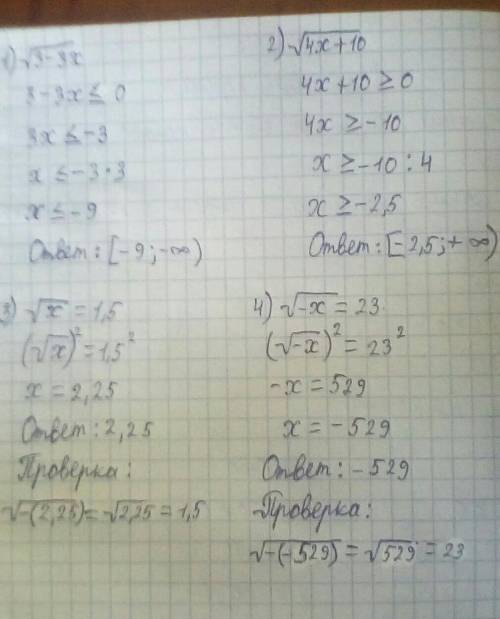 1) √3-3x
3-3x ≤ 0
3x ≤ -3
x ≤ -3·3
x ≤ -9
Ответ: [-9; -∞)
2) √4x+10
4x+10 ≥ 0
4x ≥ -10
x ≥ -10 : 4
x ≥ -2,5
Ответ: [-2,5; +∞)
3) √x = 1,5
(√x)² = 1,5²
x = 2,25
Ответ: 2,25
Проверка:
√-(2,25) = √2,25 = 1,5
4) √-x = 23
(√-x)² = 23²
-x = 529
x = -529
Ответ: -529
Проверка:
√-(-529) = √529 = 23